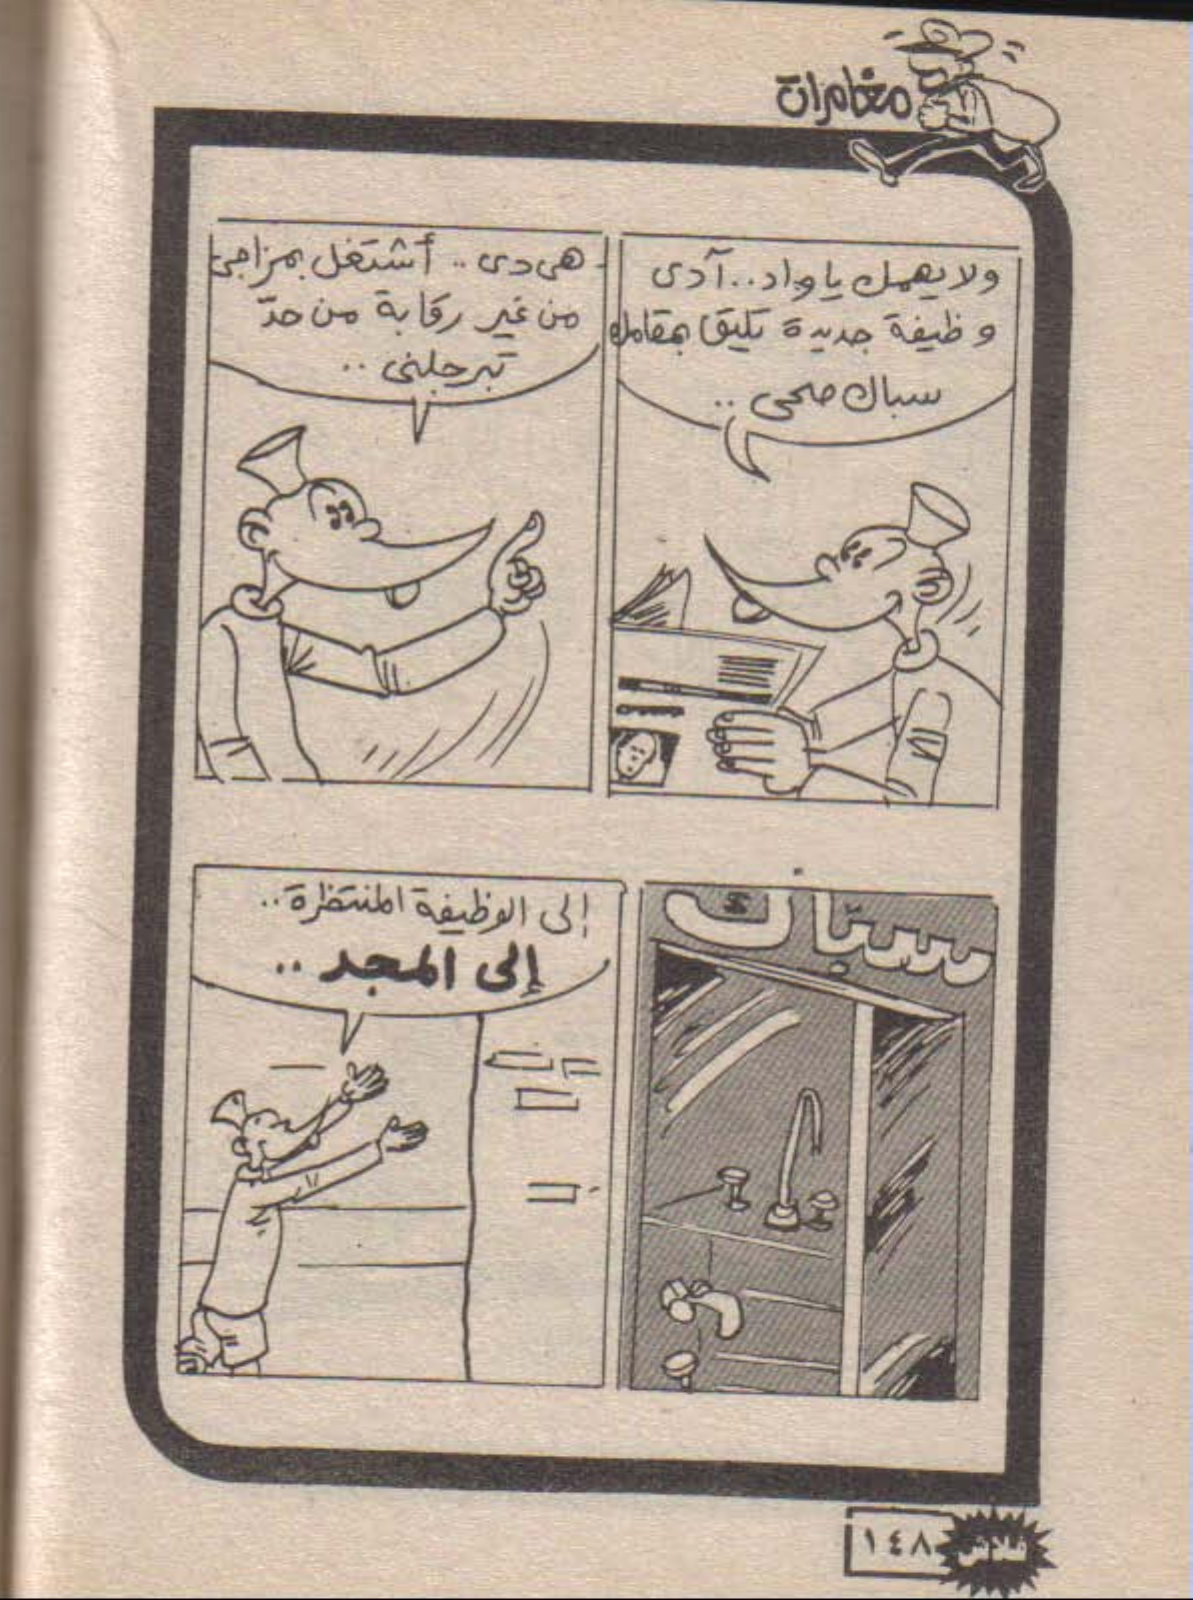 مغامرات
ولا يهمك يا واد..آدى
وظيفة جديدة تليق بمقامك
سباك صحى ..
هى دى .. أشتغل بمزاجى
من غير رقابة من حدّ
تبرجلنى ..
سبّاك
إلى الوظيفة المنتظرة..
إلى المجد ..
١٤٨